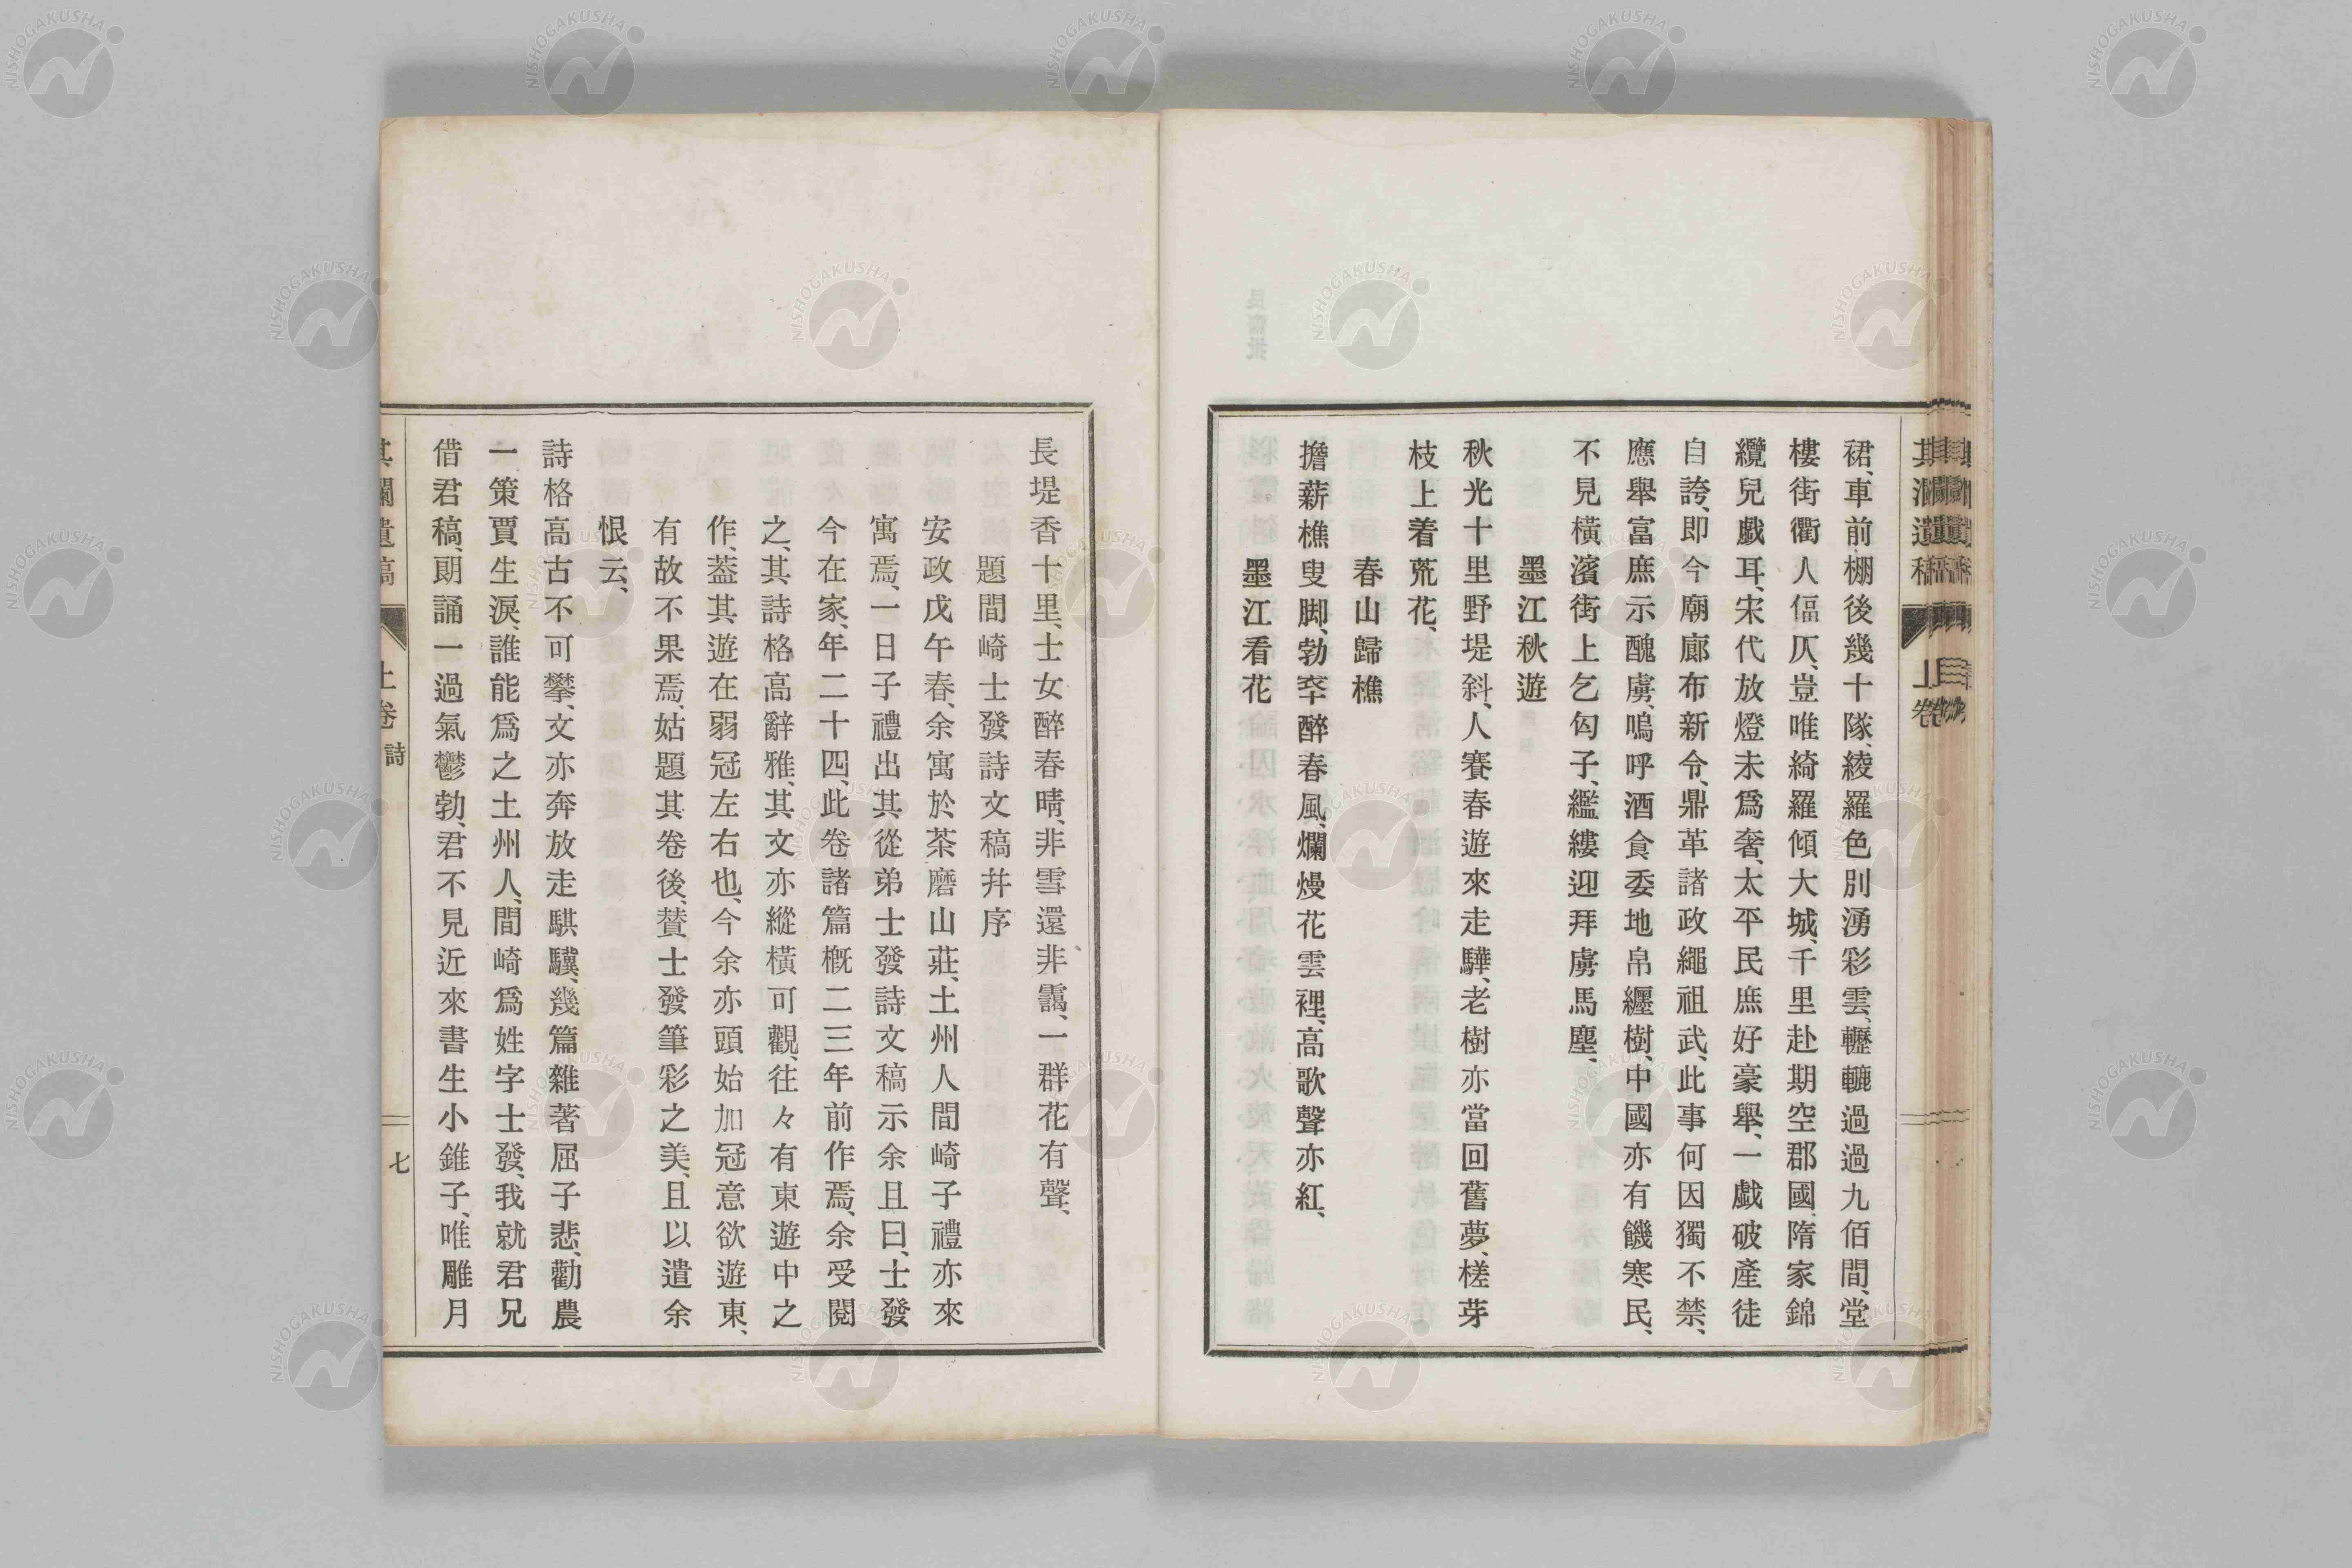 裙、車前棚後幾十隊、綾羅色別湧彩雲、轣轆過過九佰間、堂
樓街衢人偪仄、豈唯綺羅傾大城、千里赴期空郡國、隋家錦
纜兒戲耳、宋代放燈未爲奢、太平民庶好豪舉、一戲破產徒
自誇、即今廟廊布新令、鼎革諸政繩祖武、此事何因獨不禁、
應舉富庶示醜虜、嗚呼酒食委地帛纒樹、中國亦有饑寒民、
不見橫濱街上乞匃子、繿縷迎拜虜馬塵、
墨江秋遊
秋光十里野堤斜、人賽春遊來走驊、老樹亦當回舊夢、槎芽
枝上着荒花、
春山歸樵
擔薪樵叟脚、勃窣醉春風、爛熳花雲裡、高歌聲亦紅、
墨江看花
長堤香十里、士女醉春晴、非雪還非靄、一群花有聲、
題間崎士發詩文稿幷序
安政戊午春、余寓於茶磨山莊、土州人間崎子禮亦來
寓焉、一日子禮出其從弟士發詩文稿示余且曰、士發
今在家、年二十四、此卷諸篇槪二三年前作焉、余受閱
之、其詩格高辭雅、其文亦縱橫可觀、往々有東遊中之
作、蓋其遊在弱冠左右也、今余亦頭始加冠意欲遊東、
有故不果焉、姑題其卷後、賛士發筆彩之美、且以遣余
恨云、
詩格高古不可攀、文亦奔放走騏驥、幾篇雜著屈子悲、勸農
一策賈生淚、誰能爲之土州人、間崎爲姓字士發、我就君兄
借君稿、朗誦一過氣鬱勃、君不見近來書生小錐子、唯雕月
其瀾遺稿 上卷 詩 七